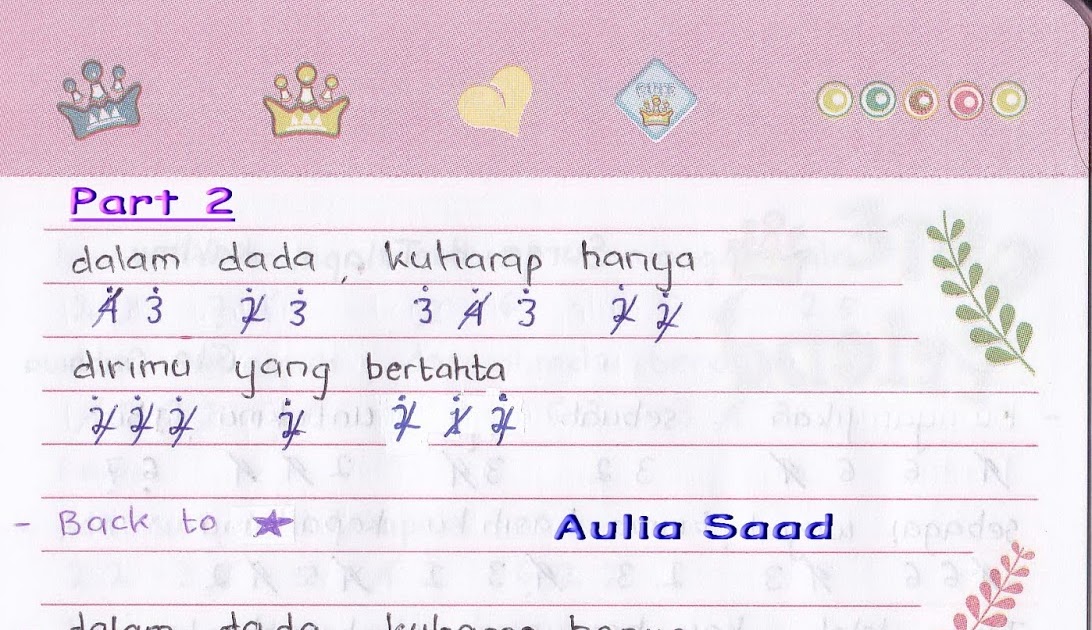 CUTE
Part 2
dalam dada, kuharap hanya
4̸̇ 3̇ 2̸̇ 3̇ 3̇ 4̸̇ 3̇ 2̸̇ 2̸̇
dirimu yang bertahta
2̸̇ 2̸̇ 2̸̇ 2̸̇ 2̸̇ 1̸̇ 2̸̇
- Back to ★
Aulia Saad
dalam dada kuharap hanya